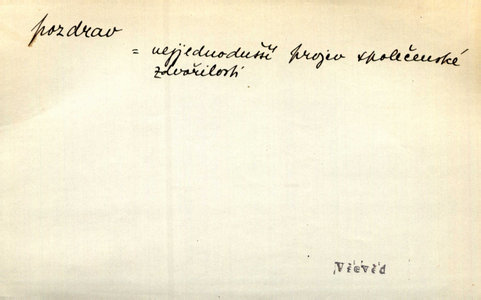 pozdrav
= nejjednodušší projev společenské
zdvořilosti